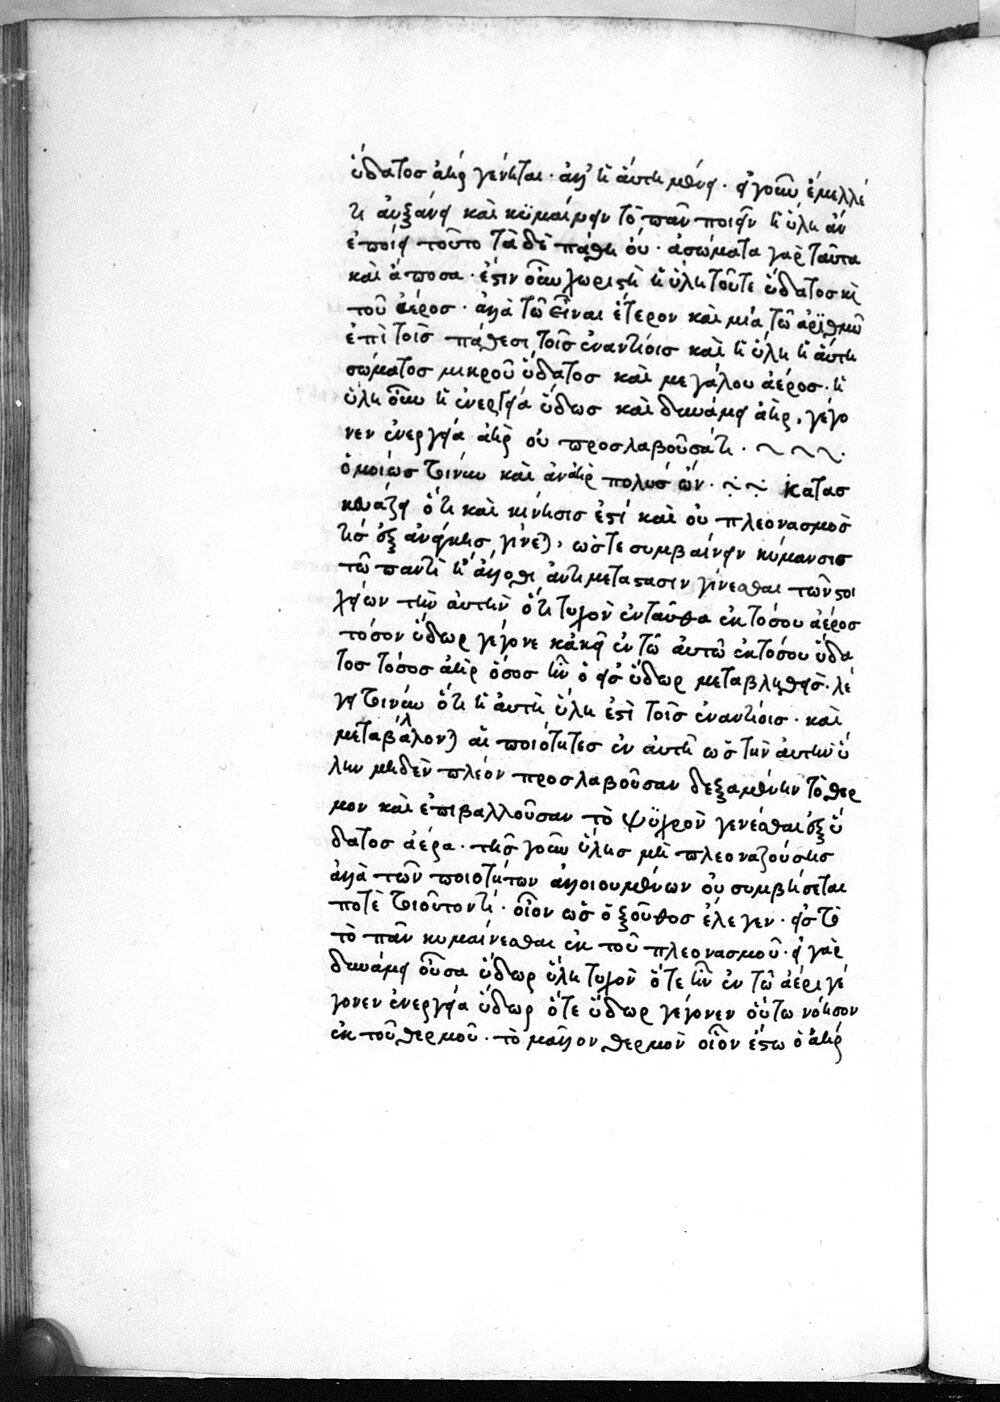 ὕδατος ἀὴρ γένηται · ἀλλ' ἡ αὐτὴ μένει · εἰ γοῦν ἔμελλέ
τι αὐξάνειν καὶ κυμαίνειν τὸ πᾶν ποιεῖν ἡ ὕλη ἂν
ἐποίει τοῦτο τὰ δὲ πάθη οὔ · ἀσώματα γὰρ ταῦτα
καὶ ἄποσα · ἔστιν οὖν χωριστὴ ἡ ὕλη τοῦτε ὕδατος κὶ
τοῦ ἀέρος · ἀλλὰ τῶ εἶναι ἕτερον καὶ μία τῶ ἀριθμῶ
ἐπὶ τοῖς πάθεσι τοῖς ἐναντίοις καὶ ἡ ὕλη ἡ αὐτὴ
σώματος μικροῦ ὕδατος καὶ μεγάλου ἀέρος · ἡ
ὕλη οὖν ἡ ἐνεργεία ὕδωρ καὶ δυνάμει ἀὴρ, γέγο
νεν ἐνεργεία ἀὴρ οὐ προσλαβοῦσά τι ·
ὁμοίως τοίνυν καὶ ἀν ἀὴρ πολυσ ὢν · κατασ
κευάζει ὅτι καὶ κίνησις ἐστί καὶ οὐ πλεονασμός
τις ἐξ ἀνάγκης γίνεται, ὥστε συμβαίνειν κύμανσις
τῶ παντὶ ἢ ἄλλοθι ἀντιμετάστασιν γίνεσθαι τῶν στοι
χείων τὴν αὐτὴν ὅτι τυχὸν ἐνταῦθα ἐκ τόσου ἀέρος
τόσον ὕδωρ γέγονε κἀκεῖ ἐν τῶ αὐτῶ ἐκ τόσου ὕδα
τος τόσος ἀὴρ ὅσος ἦν ὁ εἰς ὕδωρ μεταβληθείς · λέ
γει τοίνυν ὅτι ἡ αὐτὴ ὕλη ἐστὶ τοῖς ἐναντίοις · καὶ
μεταβάλλονται αἱ ποιότητες ἐν αὐτῆ ὡς τὴν αὐτὴν ὕ
λην μηδὲν πλέον προσλαβοῦσαν δεξαμένην τὸ θερ
μον καὶ ἐπιβαλλοῦσαν τὸ ψυχρὸν γενέσθαι ἐξ ὕ
δατος ἀέρα · τῆς γοῦν ὕλης μὴ πλεοναζούσης
ἀλλὰ τῶν ποιοτήτων ἀλλοιουμένων οὐ συμβήσεται
ποτὲ τοιοῦτόν τι · οἷον ὡς ὁ ξοῦθος ἔλεγεν · εἰς τὸ
τὸ πᾶν κυμαίνεσθαι ἐκ τοῦ πλεονασμοῦ · εἰ γὰρ
δυνάμει οὖσα ὕδωρ ὕλη τυχὸν ὅτε ἦν ἐν τῶ ἀέρι γέ
γονεν ἐνεργεία ὕδωρ ὅτε ὕδωρ γέγονεν οὕτω νόησον
ἐκ τοῦ θερμοῦ · τὸ μᾶλλον θερμὸν οἷον ἔστω ὁ ἀὴρ